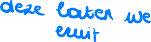 deze laten we
eruit